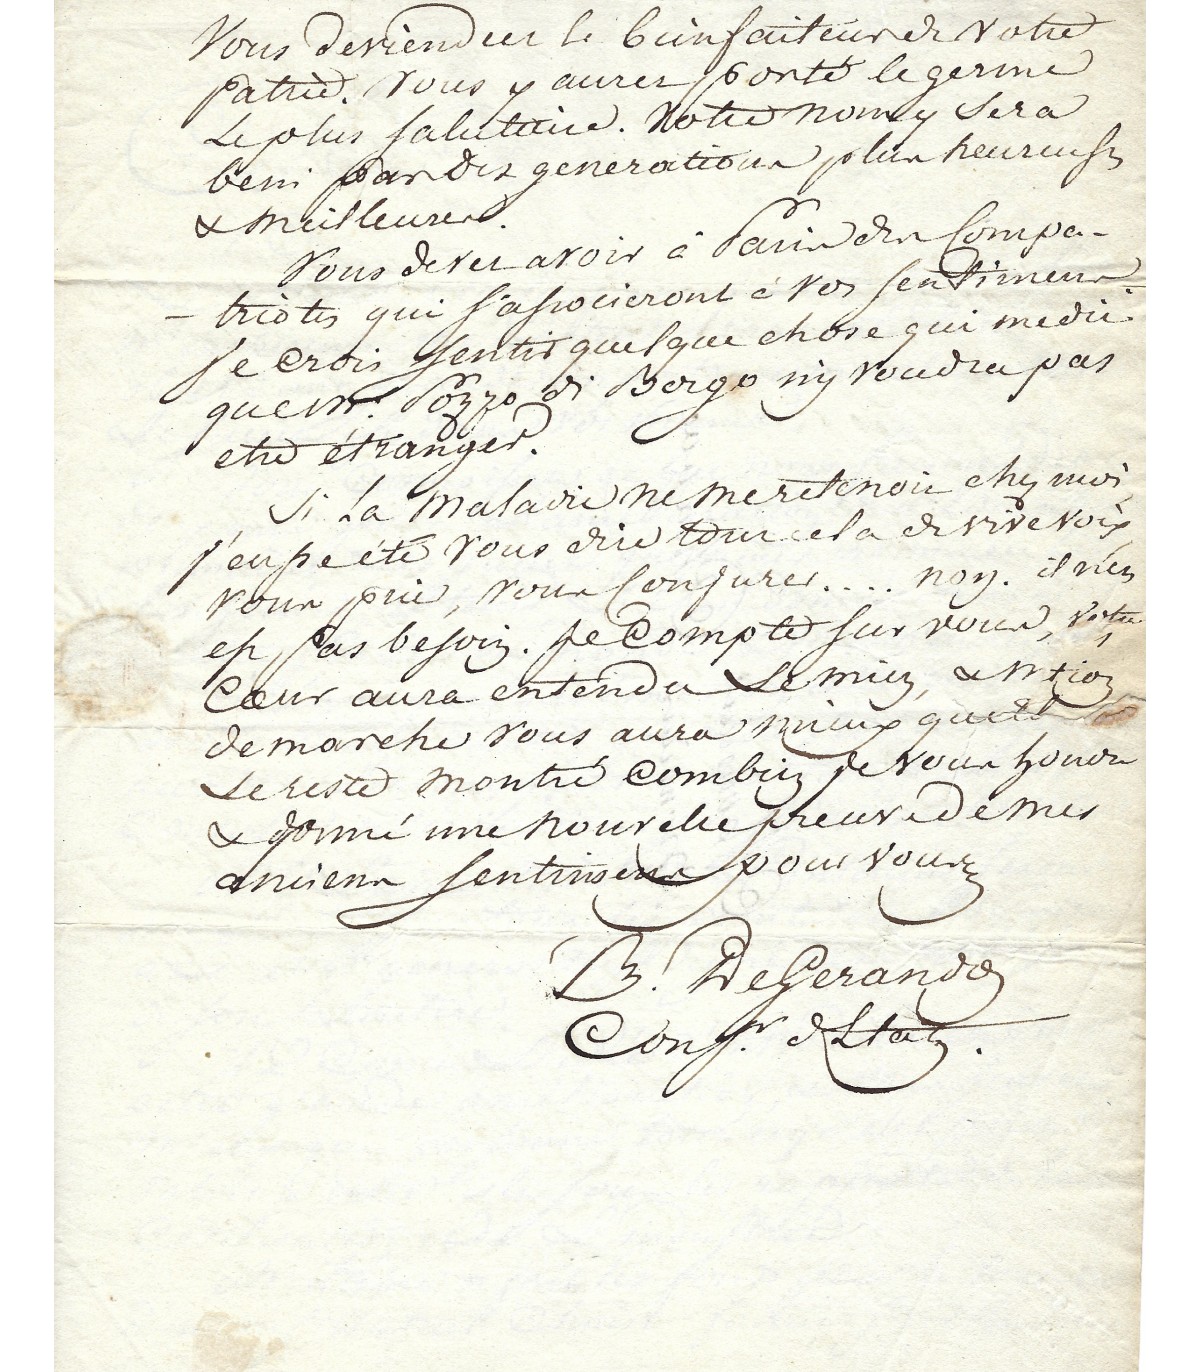 Vous deviendrez le bienfaiteur de votre
patrie. Vous y aurez porté le germe
le plus salutaire. Votre nom y sera
beni par des generations plus heureuses
& meilleures.
Vous devez avoir à Paris des Compa-
-triotes qui s'associeront à vos sentimens.
je crois sentir quelque chose qui me dit
que Mr. Pozzo di Borgo n'y voudra pas
etre étranger.
Si la maladie ne me retenoit chez moi,
j'eusse été vous dire tout cela de vive voix,
vous prier, vous Conjurer.... non. il n'en
est pas besoin. je compte sur vous, votre
Coeur aura entendu le mien, &
demarche vous aura mieux que
le reste montré combien je vous honore
& donné une nouvelle preuve de mes
anciens sentimens pour vous
B. DeGerando
Consr. d'Etat.